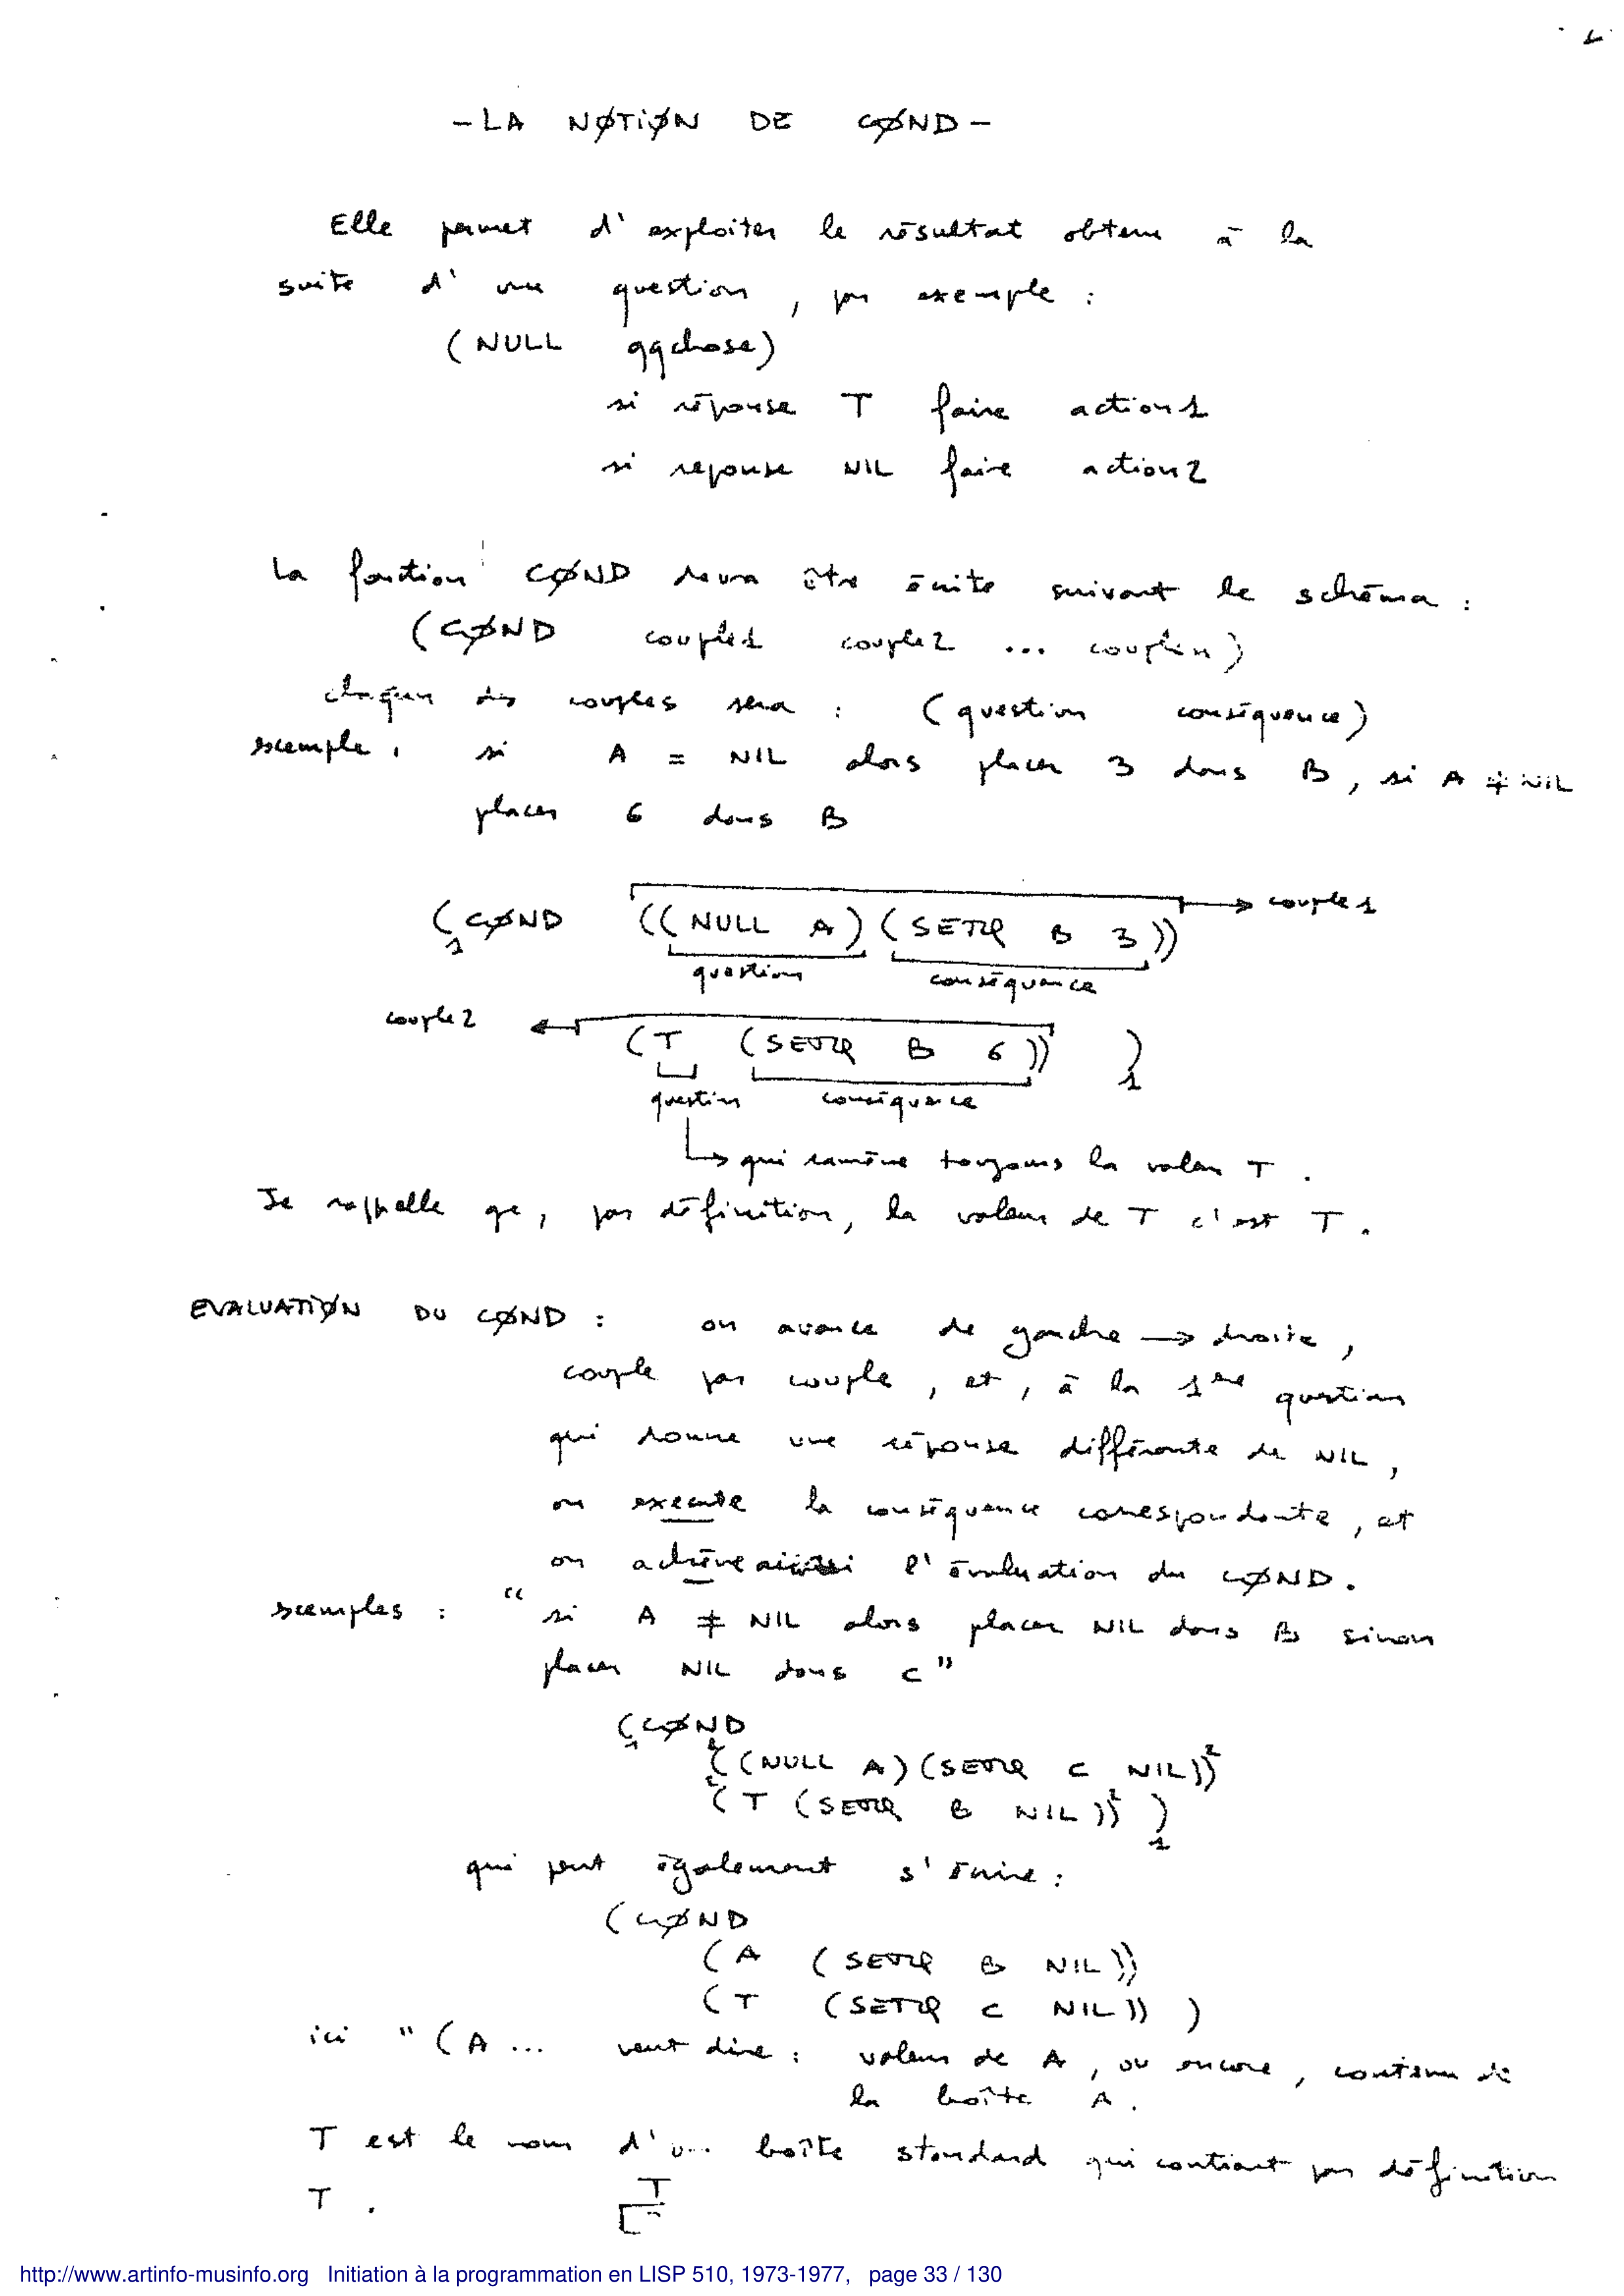 -LA NØTiØN DE CØND-
Elle permet d'exploiter le résultat obtenu à la
suite d'une question, par exemple :
(NULL qqchose)
si réponse T faire action1
si reponse NIL faire action2
La fonction CØND devra être écrite suivant le schéma :
(CØND couple1 couple2 ... couplen)
chaqun des couples sera : (question conséquence)
exemple : si A = NIL alors placer 3 dans B, si A ≠ NIL
placer 6 dans B
couple1
(CØND ((NULL A)(SETQ B 3))
1
question conséquence
couple2
(T (SETQ B 6)) )
1
question conséquence
qui ramène toujours la valeur T.
Je rappelle qe, par définition, la valeur de T c'est T.
EVALUATiØN DU CØND : on avance de gauche → droite,
couple par couple, et, à la 1ère question
qui donne une réponse différente de NIL,
on execute la conséquence correspondante, et
on achève ainsi l'évaluation du CØND.
exemples : "si A ≠ NIL alors placer NIL dans B sinon
placer NIL dans C"
(CØND
1
2((NULL A)(SETQ C NIL))2
2(T (SETQ B NIL))2 )
1
qui peut également s'écrire :
(CØND
(A (SETQ B NIL))
(T (SETQ C NIL)) )
ici "(A ... veut dire : valeur de A, ou encore, contenu de
la boîte A.
T est le nom d'u... boîte standard qui contient par définition
T.
T
http://www.artinfo-musinfo.org Initiation à la programmation en LISP 510, 1973-1977, page 33 / 130